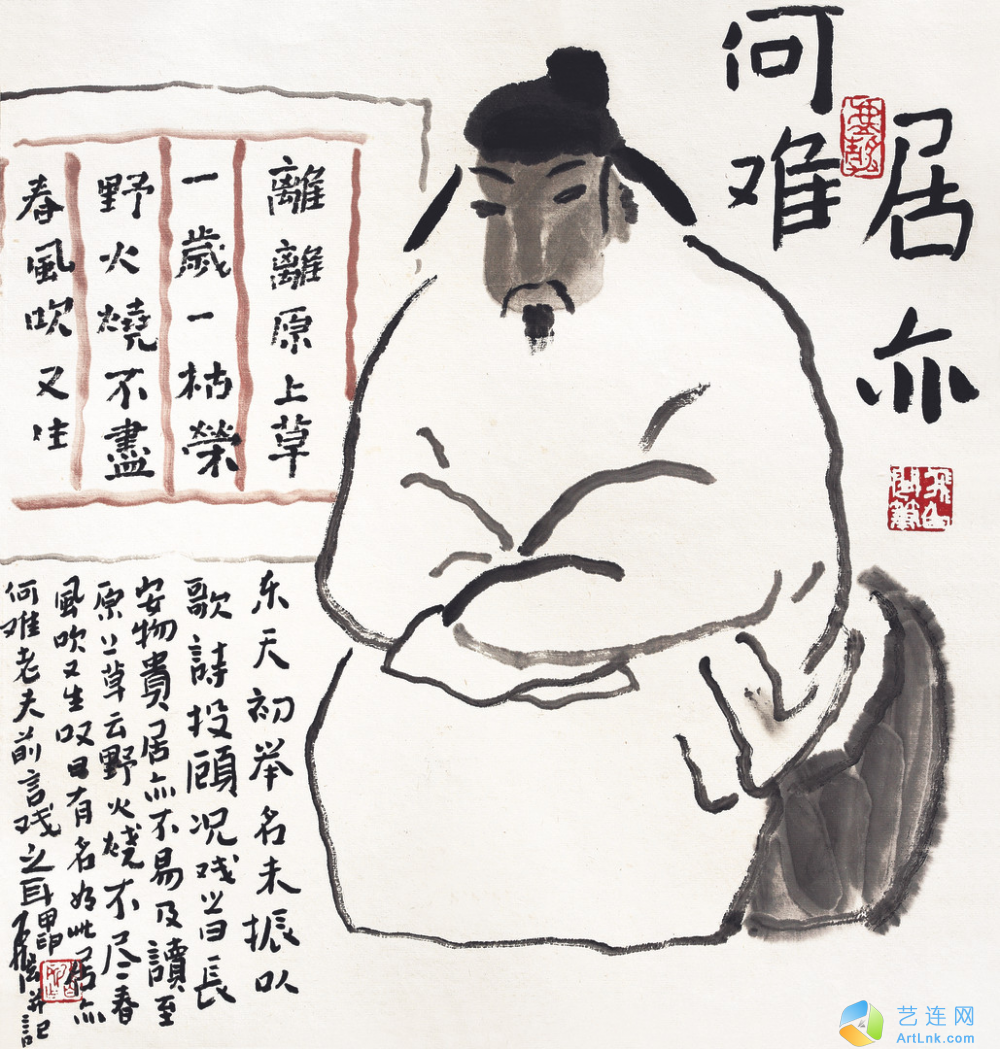 居亦
何难
離離原上草
一歲一枯榮
野火燒不盡
春風吹又生
乐天初举名未振以
歌詩投顾况戏曰长
安物貴居亦不易及讀至
原上草云野火烧不尽春
風吹又生叹曰有名如此居亦
何难老夫前言戏之耳
并記
艺连网
ArtLnk.com